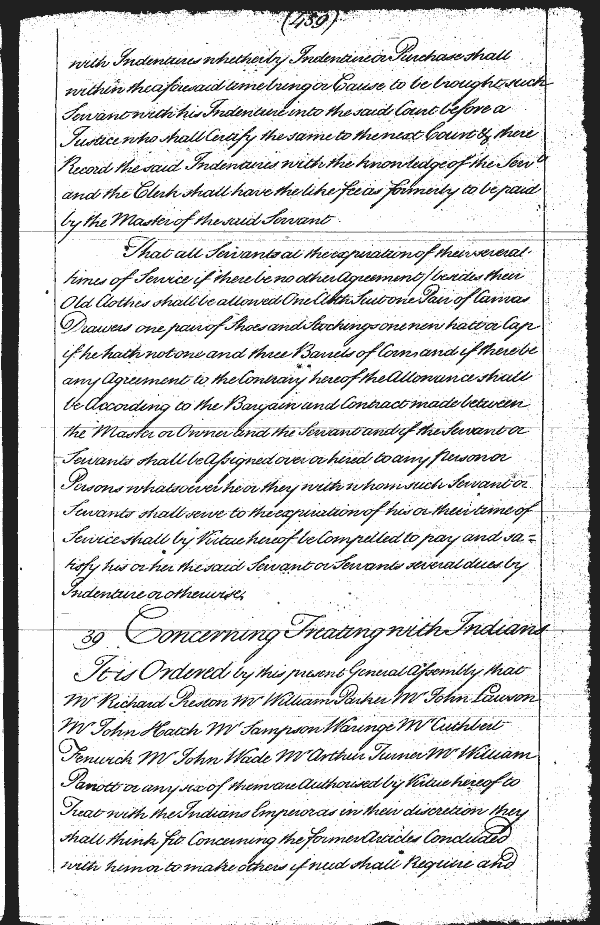 (459)
with Indentures whether by Indenture or Purchase shall
within the aforesaid time bring or Cause to be brought such
Servant with his Indenture into the said Court before a
Justice who shall Certify the same to the next Court & there
Record the said Indentures with the knowledge of the Serv.t
and the Clerk shall have the like fee as formerly to be paid
by the Master of the said Servant
That all Servants at the expiration of their several
times of Service if there be no other Agreement/besides their
Old Clothes shall be allowed One Cloth Suit one Pair of Canvas
Drawers one pair of Shoes and Stockings one new hatt or Cap
if he hath not one and three Barrels of Corn and if there be
any Agreement to the Contrary hereof the Allowance shall
be According to the Bargain and Contract made between
the Master or Owner and the Servant and if the Servant or
Servants shall be Assigned over or hired to any person or
Persons whatsoever he or they with whom such Servant or
Servants shall serve to the expiration of his or their time of
Service shall by Virtue hereof be Compelled to pay and sa=
tisfy his or her the said Servant or Servants several dues by
Indenture or otherwise,
39 Concerning Treating with Indians
It is Ordered by this present General Assembly that
Mr Richard Preston Mr William Parker Mr John Lawson
Mr John Hatch Mr Sampson Waringe Mr Cuthbert
Fenwick Mr John Wade Mr Arthur Turner Mr William
Parrott or any six of them are Authorised by Virtue hereof to
Treat with the Indians Emperor as in their discretion they
shall think fit Concerning the former Articles Concluded
with him or to make others if need shall Require and